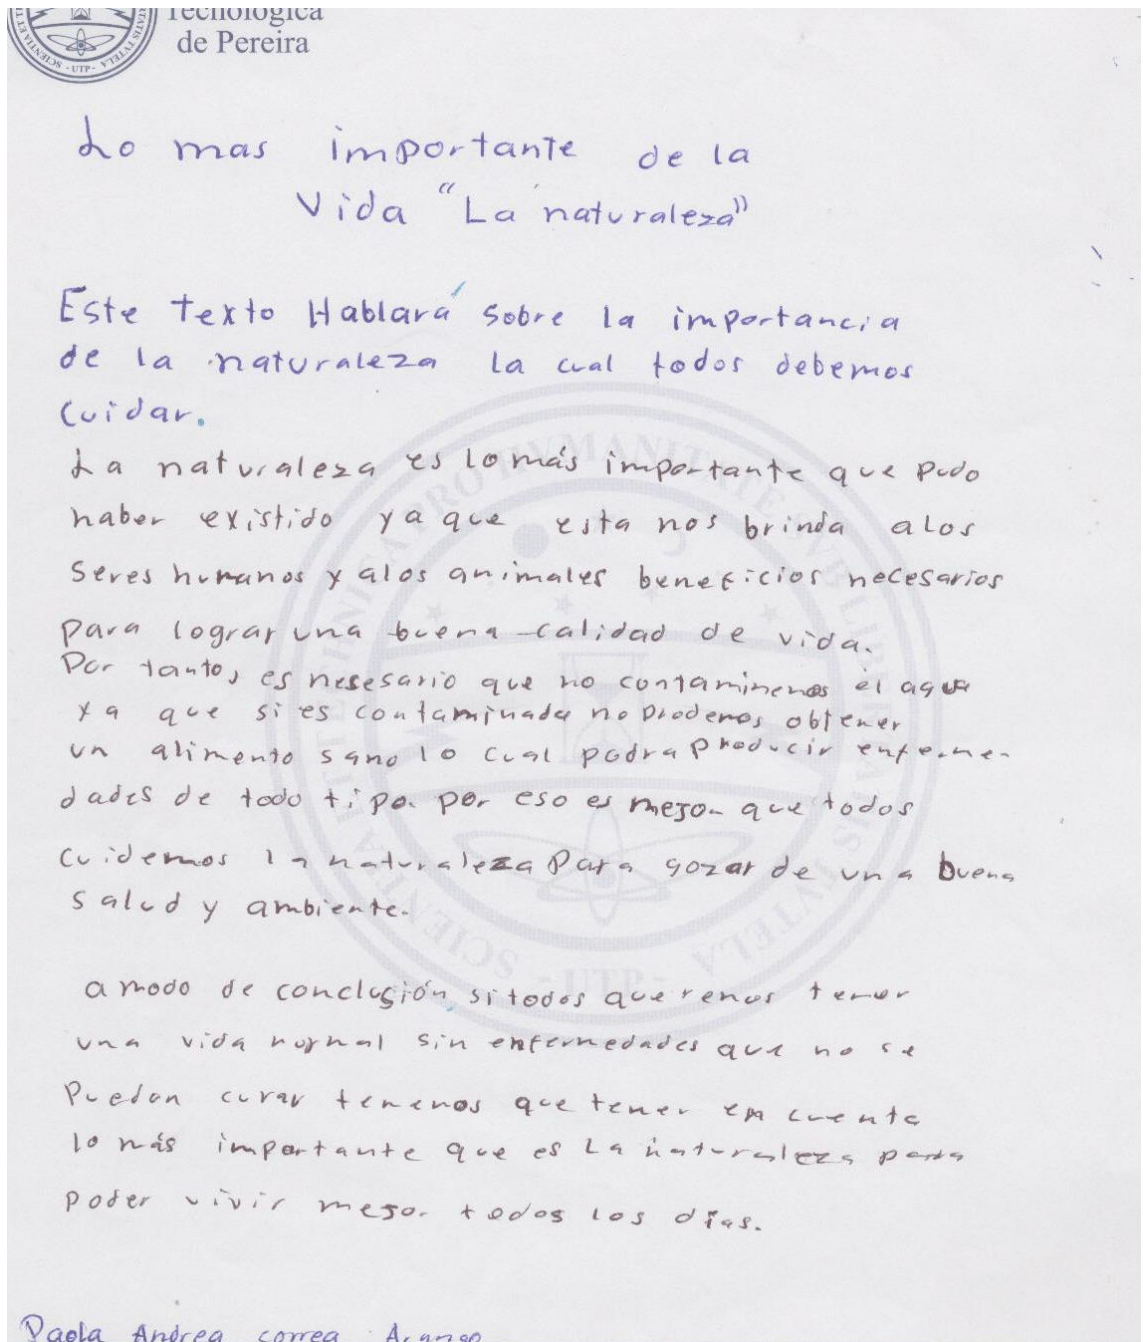 Tecnológica
de Pereira
SCIENTIA ET - UTP - TVTELA
Lo mas importante de la
Vida "La naturaleza"
Este texto Hablará sobre la importancia
de la naturaleza la cual todos debemos
cuidar.
La naturaleza es lo más importante que pudo
haber existido ya que esta nos brinda alos
seres humanos y alos animales beneficios necesarios
para lograr una buena calidad de vida.
Por tanto, es nesesario que no contaminemos el agua
ya que si es contaminada no prodemos obtener
un alimento sano lo cual podra producir enferme-
dades de todo tipo. por eso es mejor que todos
cuidemos la naturaleza para gozar de una buena
salud y ambiente.
a modo de conclusión, si todos queremos tener
una vida normal sin enfermedades que no se
puedan curar tenemos que tener en cuenta
lo más importante que es La naturaleza para
poder vivir mejor todos los días.
Paola Andrea correa Arango
SCIENTIA ET TECHNICA PRO HVMANITATE SVB LIBERTATIS TVTELA - UTP -